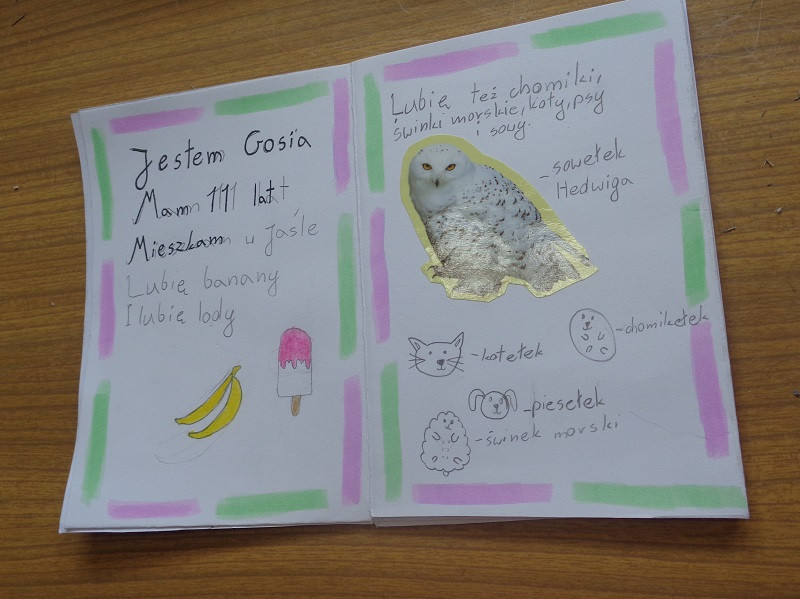 Jestem Gosia
Mam 11 lat
Mieszkam w Jaśle
Lubię banany
I lubię lody
Lubię też chomiki,
świnki morskie, koty, psy
i sowy.
-sowełek
Hedwiga
-chomikełek
-kotełek
-piesełek
-świnek morski